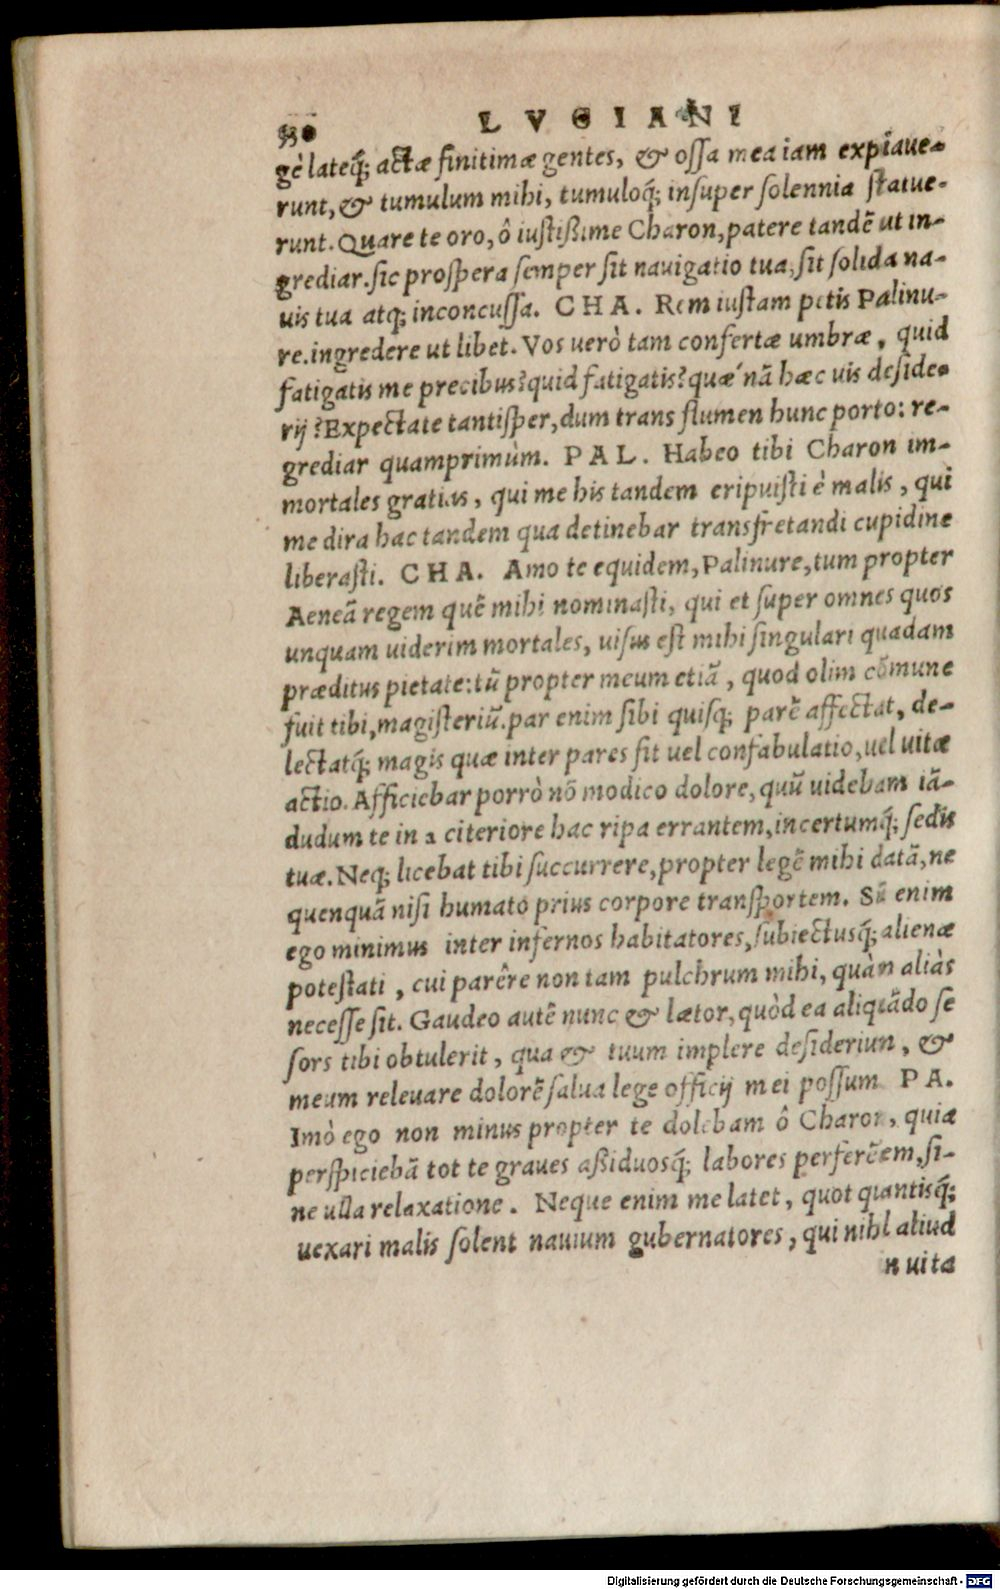 LVCIANI
gè lateq́; actæ finitimæ gentes, & ossa mea iam expiaue-
runt, & tumulum mihi, tumuloq́; insuper solennia statue-
runt. Quare te oro, ô iustißime Charon, patere tandẽ ut in-
grediar. sic prospera semper sit nauigatio tua, sit solida na-
uis tua atq; inconcussa. CHA. Rem iustam petis Palinu-
re. ingredere ut libet. Vos uerò tam confertæ umbræ, quid
fatigatis me precibus? quid fatigatis? quæ nã hæc uis deside-
rij? Expectate tantisper, dum trans flumen hunc porto: re-
grediar quamprimùm. PAL. Habeo tibi Charon im-
mortales gratias, qui me his tandem eripuisti è malis, qui
me dira hac tandem qua detinebar transfretandi cupidine
liberasti. CHA. Amo te equidem, Palinure, tum propter
Aeneã regem quẽ mihi nominasti, qui et super omnes quos
unquam uiderim mortales, uisus est mihi singulari quadam
præditus pietate: tũ propter meum etiã, quod olim cõmune
fuit tibi, magisteriũ. par enim sibi quisq; parẽ affectat, de-
lectatq́; magis quæ inter pares fit uel confabulatio, uel uitæ
actio. Afficiebar porrò nõ modico dolore, quũ uidebam iã-
dudum te in a citeriore hac ripa errantem, incertumq́; sedis
tuæ. Neq; licebat tibi succurrere, propter legẽ mihi datã, ne
quenquã nisi humato prius corpore transportem. Sũ enim
ego minimus inter infernos habitatores, subiectusq́; alienæ
potestati, cui parêre non tam pulchrum mihi, quàm aliàs
necesse sit. Gaudeo autẽ nunc & lætor, quòd ea aliquãdo se
sors tibi obtulerit, qua & tuum implere desiderium, &
meum releuare dolorẽ salua lege officij mei possum PA.
Imò ego non minus propter te dolebam ô Charon, quia
perspiciebã tot te graues aßiduosq́; labores perferẽtem, si-
ne ulla relaxatione. Neque enim me latet, quot quantisq́;
uexari malis solent nauium gubernatores, qui nihl aliud
n uita
Digitalisierung gefördert durch die Deutsche Forschungsgemeinschaft - DFG